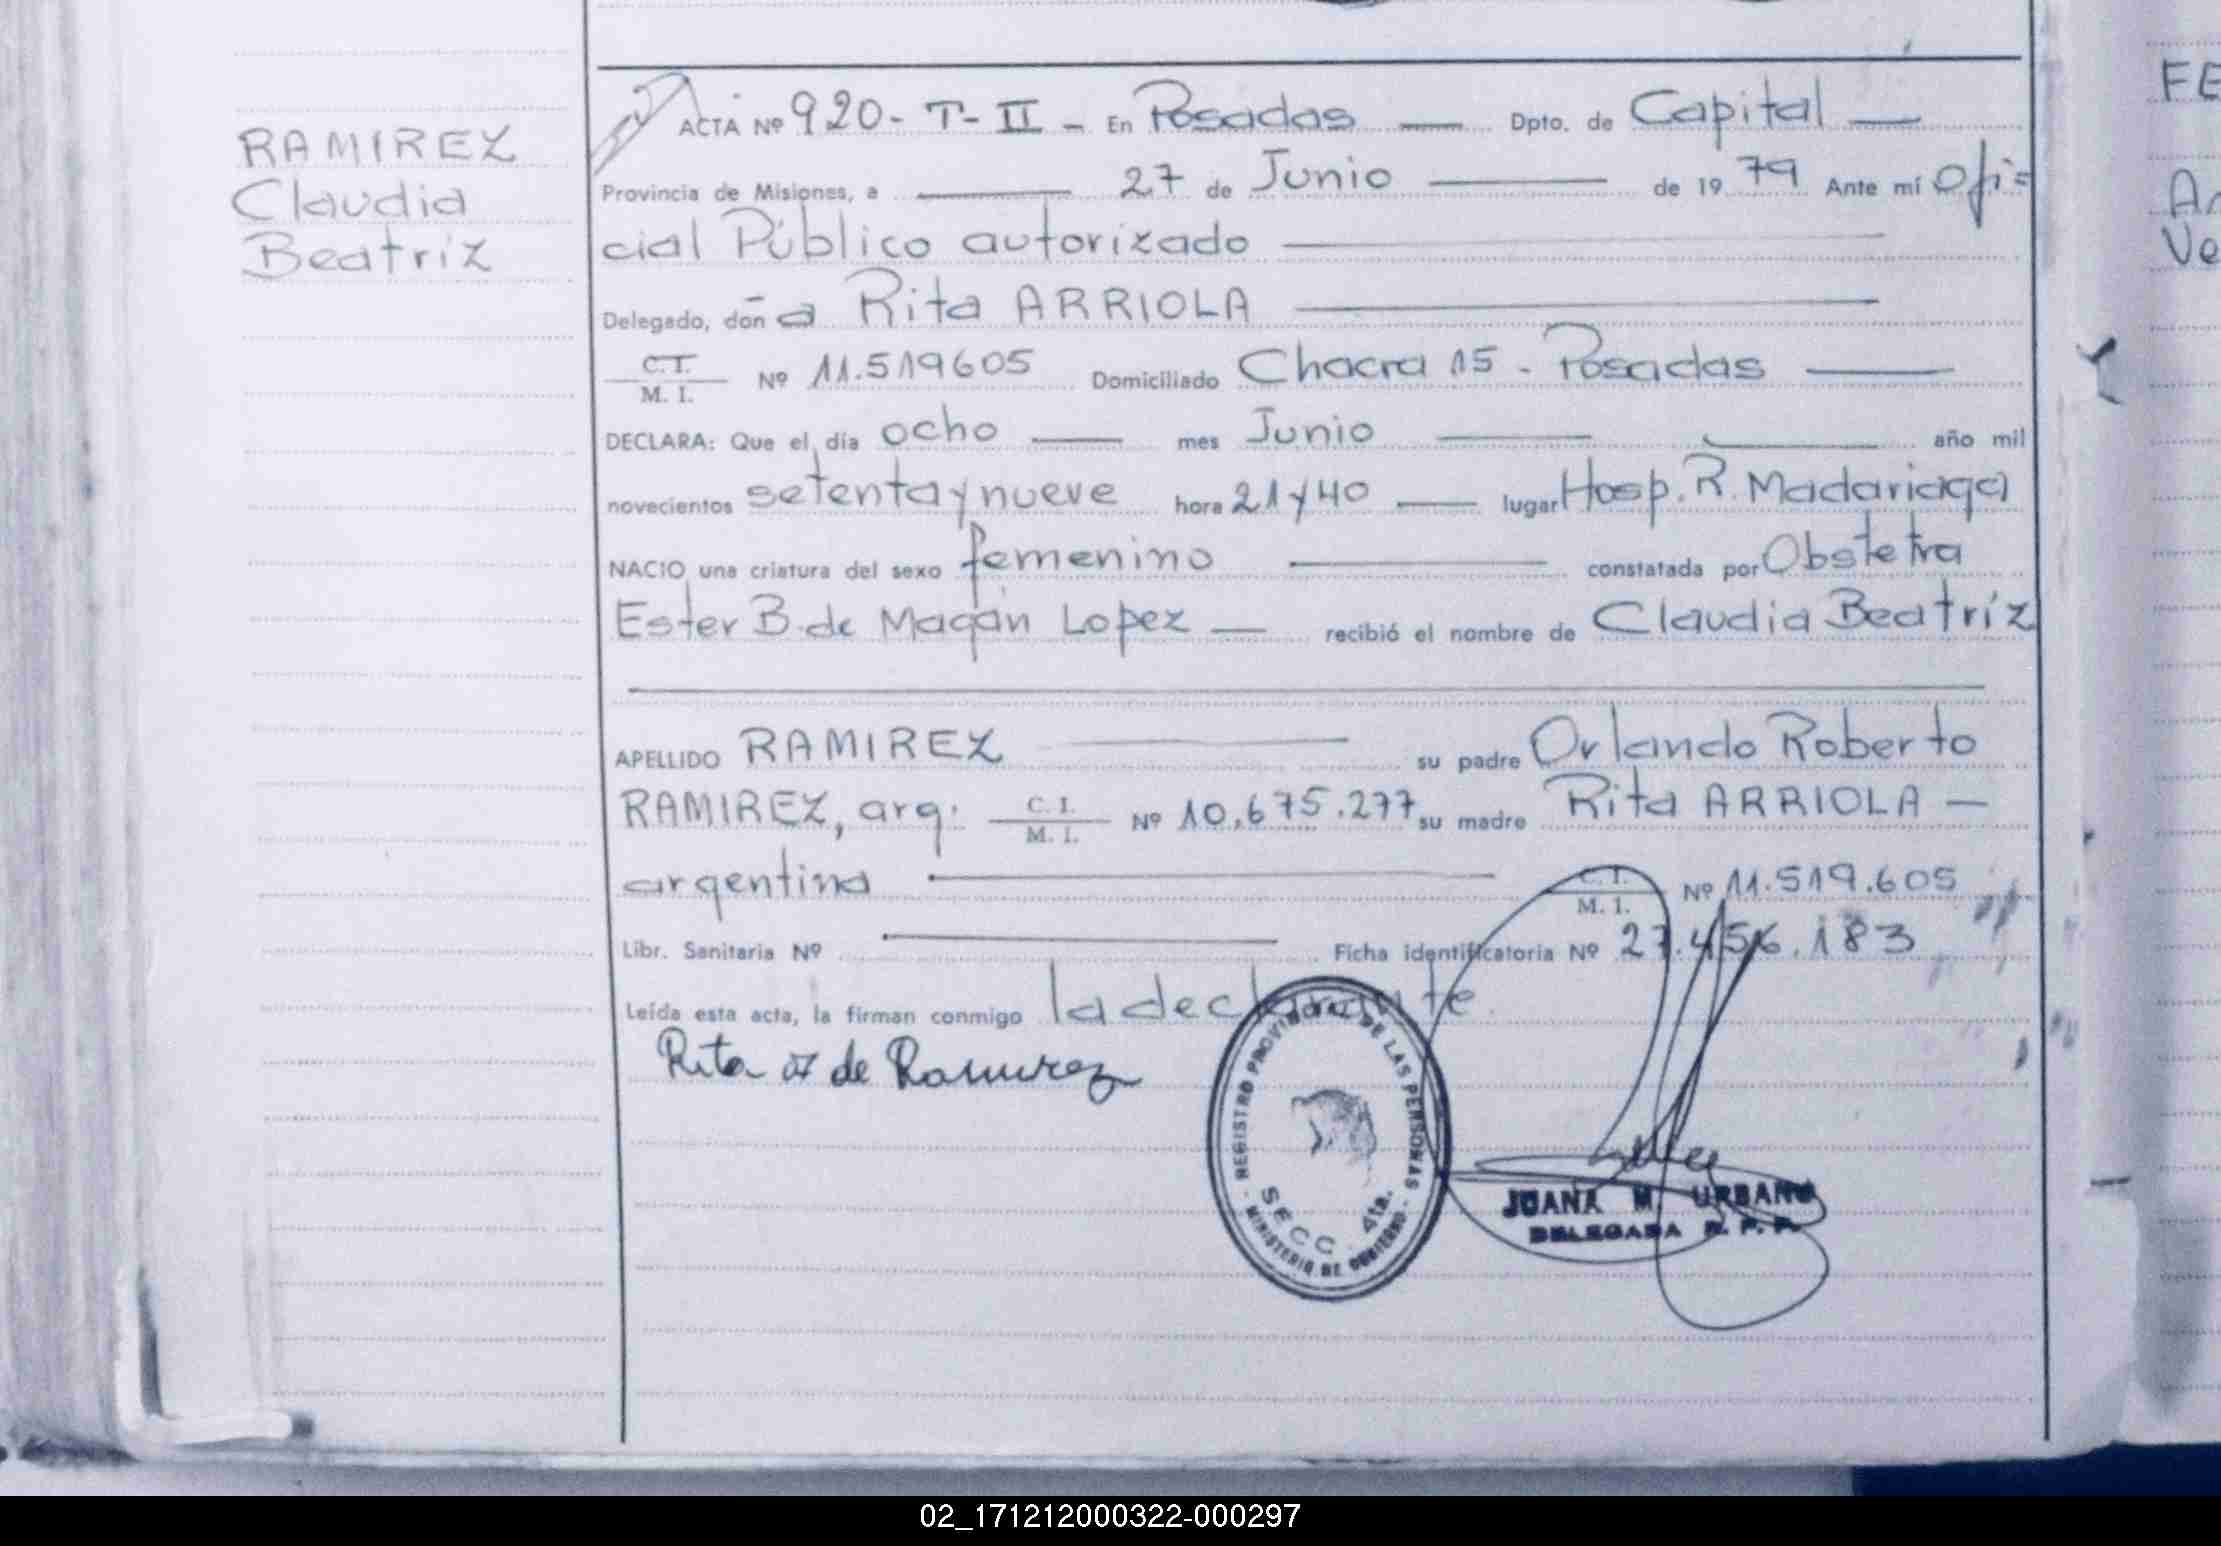 RAMIREZ
Claudia
Beatríz
ACTA Nº 920 - T - II - En Posadas Dpto. de Capital
Provincia de Misiones, a 27 de Junio de 1979 Ante mí Ofi=
cial Público autorizado
Delegado, doña Rita ARRIOLA
C.I.
M. I. Nº 11.519605 Domiciliado Chacra 15 - Posadas
DECLARA: Que el día ocho mes Junio año mil
novecientos setenta y nueve hora 21 y 40 lugar Hosp. R. Madariaga
NACIO una criatura del sexo femenino constatada por Obstetra
Ester B. de Magán Lopez recibió el nombre de Claudia Beatríz
APELLIDO RAMIREZ su padre Orlando Roberto
RAMIREZ, arg. C.I. M. I. Nº 10.675.277 su madre Rita ARRIOLA -
argentina C.I. M. I. Nº 11.519.605
Libr. Sanitaria Nº Ficha identificatoria Nº 27.456.183
Leída esta acta, la firman conmigo la declarante.
Rita A de Ramirez
REGISTRO PROVINCIAL DE LAS PERSONAS
SECC 4ta.
MINISTERIO DE GOBIERNO
JUANA M URBANO
DELEGADA R. P. P.
FE
Ve
02_171212000322-000297